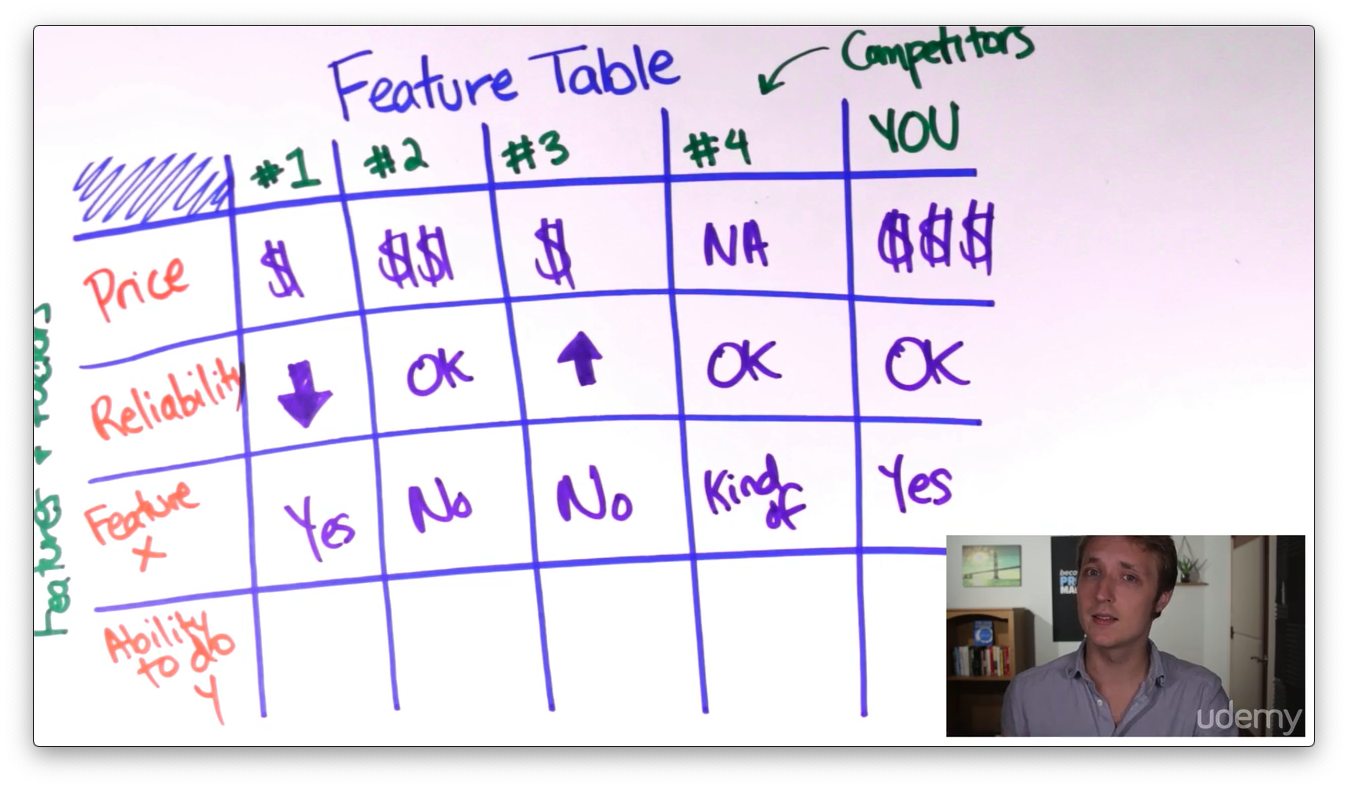 Feature Table
Competitors
#1 #2 #3 #4 YOU
Price $ $$ $ NA $$$
Reliability ⬇ OK ⬆ OK OK
Feature X Yes No No Kind of Yes
Ability
to do
Y
Features +
udemy